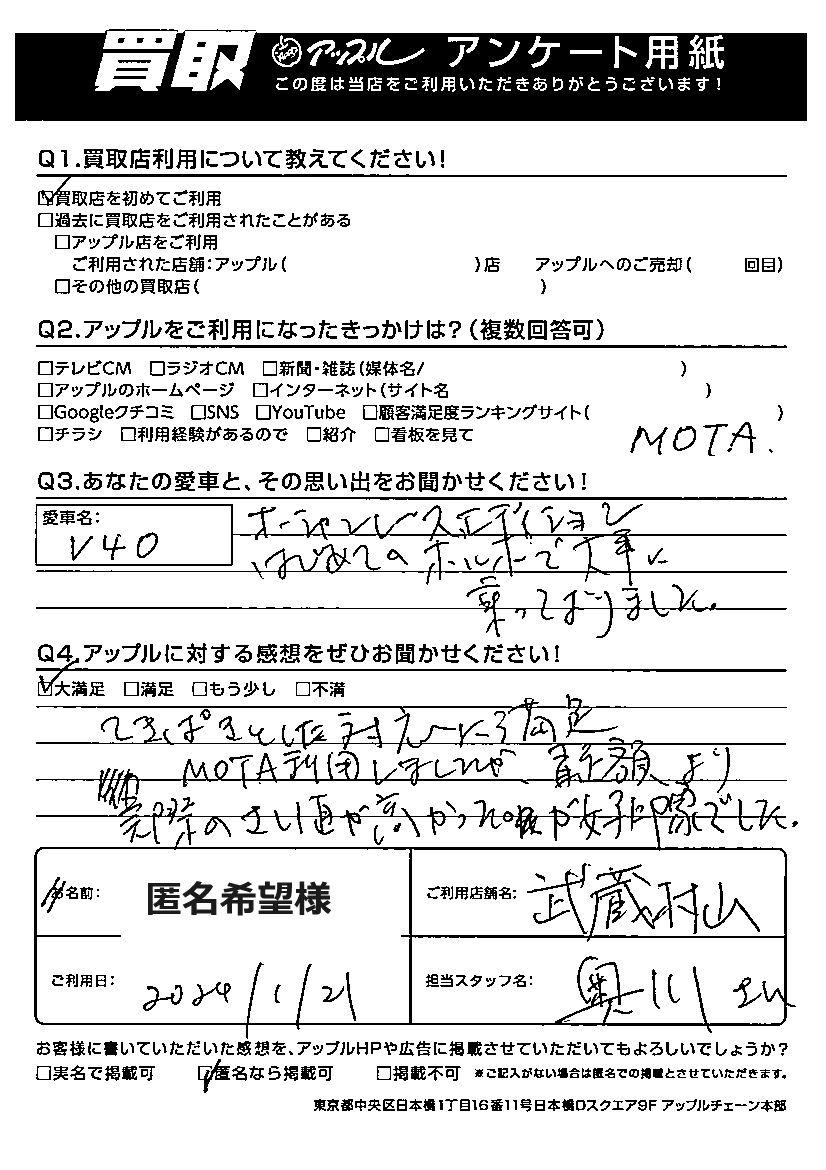 買取 アップル アンケート用紙
この度は当店をご利用いただきありがとうございます!
Q1.買取店利用について教えてください!
☑買取店を初めてご利用
□過去に買取店をご利用されたことがある
□アップル店をご利用
ご利用された店舗:アップル( )店 アップルへのご売却( 回目)
□その他の買取店( )
Q2.アップルをご利用になったきっかけは?(複数回答可)
□テレビCM □ラジオCM □新聞・雑誌(媒体名/ )
□アップルのホームページ □インターネット(サイト名 )
□Googleクチコミ □SNS □YouTube □顧客満足度ランキングサイト( )
□チラシ □利用経験があるので □紹介 □看板を見て MOTA.
Q3.あなたの愛車と、その思い出をお聞かせください!
愛車名: V40
オーシャンレースエディション
はじめてのボルボで大事に
乗っておりました。
Q4.アップルに対する感想をぜひお聞かせください!
☑大満足 □満足 □もう少し □不満
てきぱきとした対応
MOTA利用しましたが、 額より
実際の が高かった が好印象でした。
お名前: 匿名希望様
ご利用店舗名: 武蔵村山
ご利用日: 2024/1/21
担当スタッフ名: 奥川 さん
お客様に書いていただいた感想を、アップルHPや広告に掲載させていただいてもよろしいでしょうか?
□実名で掲載可 ☑匿名なら掲載可 □掲載不可 ※ご記入がない場合は匿名での掲載とさせていただきます。
東京都中央区日本橋1丁目16番11号日本橋Dスクエア9F アップルチェーン本部